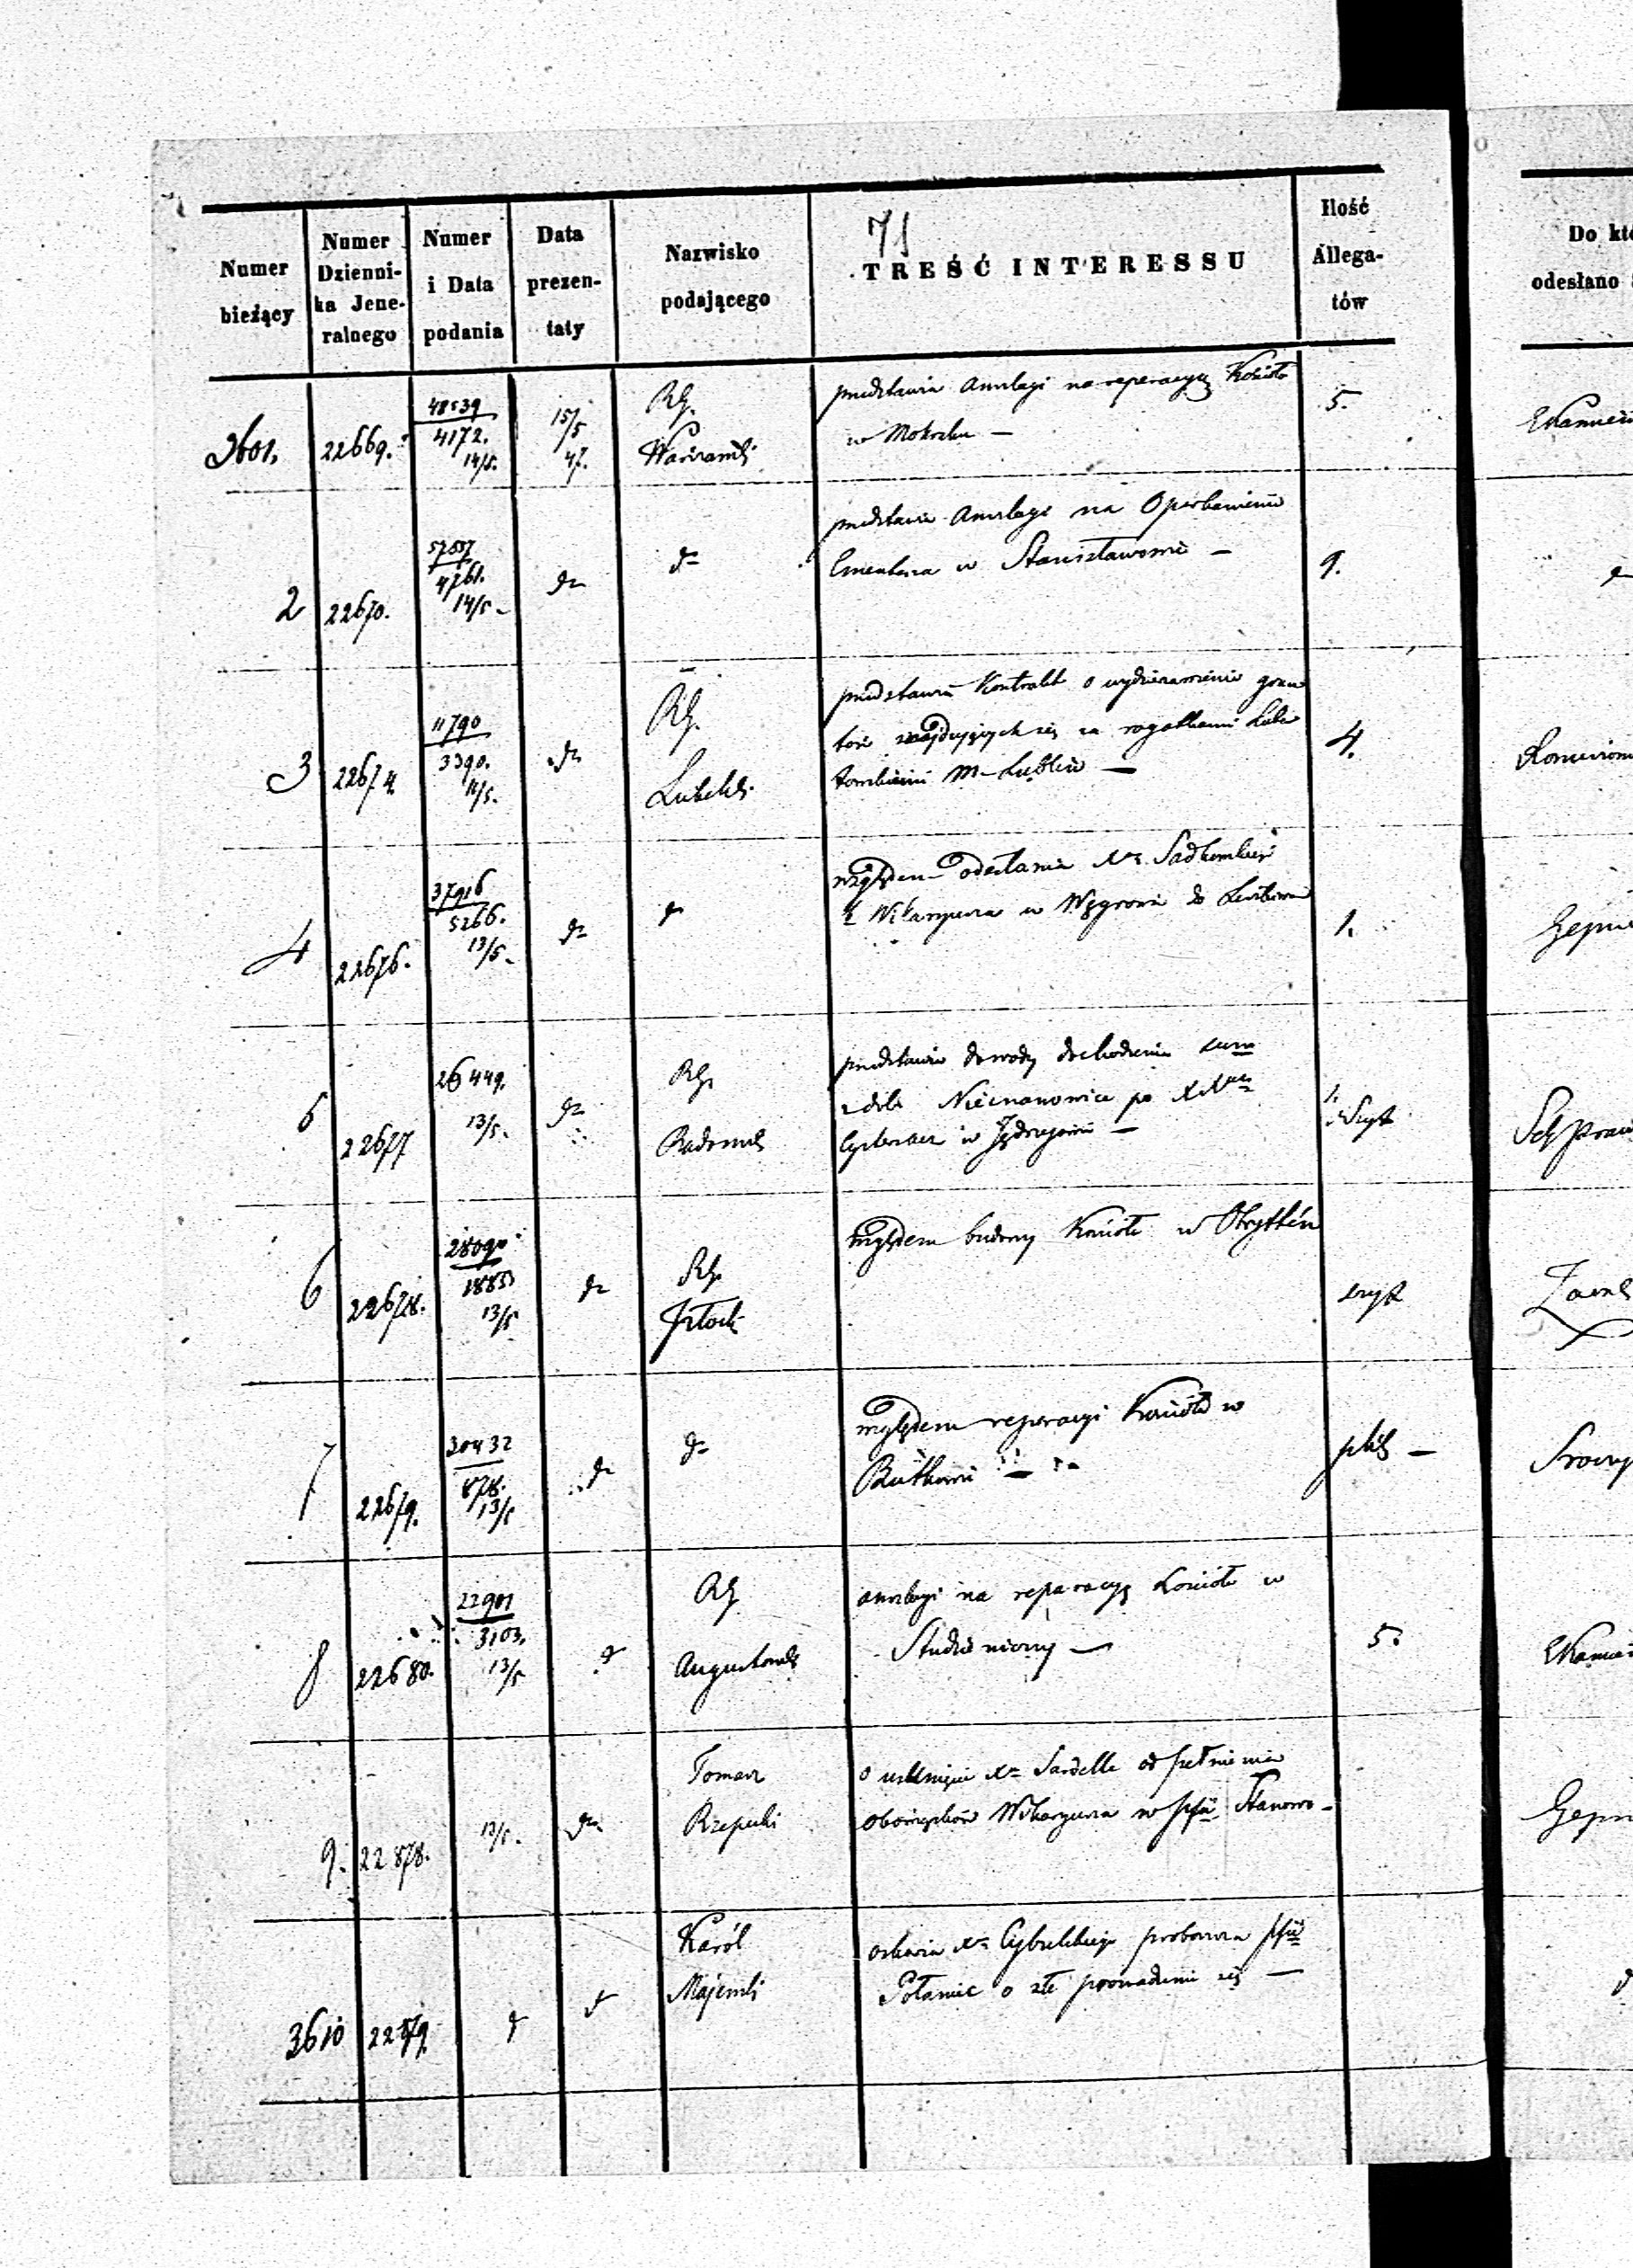 71
Numer bieżący
Numer Dzienni-ka Jene-ralnego
Numer i Data podania
Data prezen-taty
Nazwisko podającego
TREŚĆ INTERESSU
Ilość Allega-tów
Do
odesłano
3601.
22669.
48539
4172.
14/5.
15/5
47.
RG.
Warszawski
przedstawia Anszlagi na reperacyą Kościoła
w Mokobodu —
5.
2
22670.
4761.
14/5.
dto
dto
przedstawia Anszlagi na Oparkanienie
Cmentarza w Stanisławowie —
9.
3
22674
11790
3390.
14/5.
dto
RG.
Lubelski
przedstawia Kontrakt o wydzierżawienie grun
tów znajdujących się za rogatkami Luba
towskiemi M. Lublin —
4.
4
22676.
37916
5266.
13/5.
dto
dto
względem odesłania Xa Sadkowskiego
z Wikaryusza w Węgrowie do
1.
5
22677
26449.
13/5.
dto
RG.
Radomski
przedstawia dowody dochodzenia summ
z dóbr po XX
Cystersach w Jędrzejowie —
6
22678.
28090
1885
13/5
dto
RG.
Płocki
względem budowy Kościoła w Obrytém
szyt
7
22679.
30432
878.
13/5
dto
dto
względem reperacyi Kościoła w
Rutkowie —
plik —
8
22680.
22901
3103.
13/5
dto
RG
Augustowski
anszlagi na reparacyą Kościoła w
Studzienicznej —
5.
9.
22878.
13/5.
dto
Tomasz
Rzepecki
o usunięcie Xa Sardelli od pełnienia
obowiązków Wikaryusza w pfii
3610
22879
dto
dto
Karól
Majewski
oskarża Xa Cybulskiego proboszcza pfii
Połaniec o złe prowadzenie się —